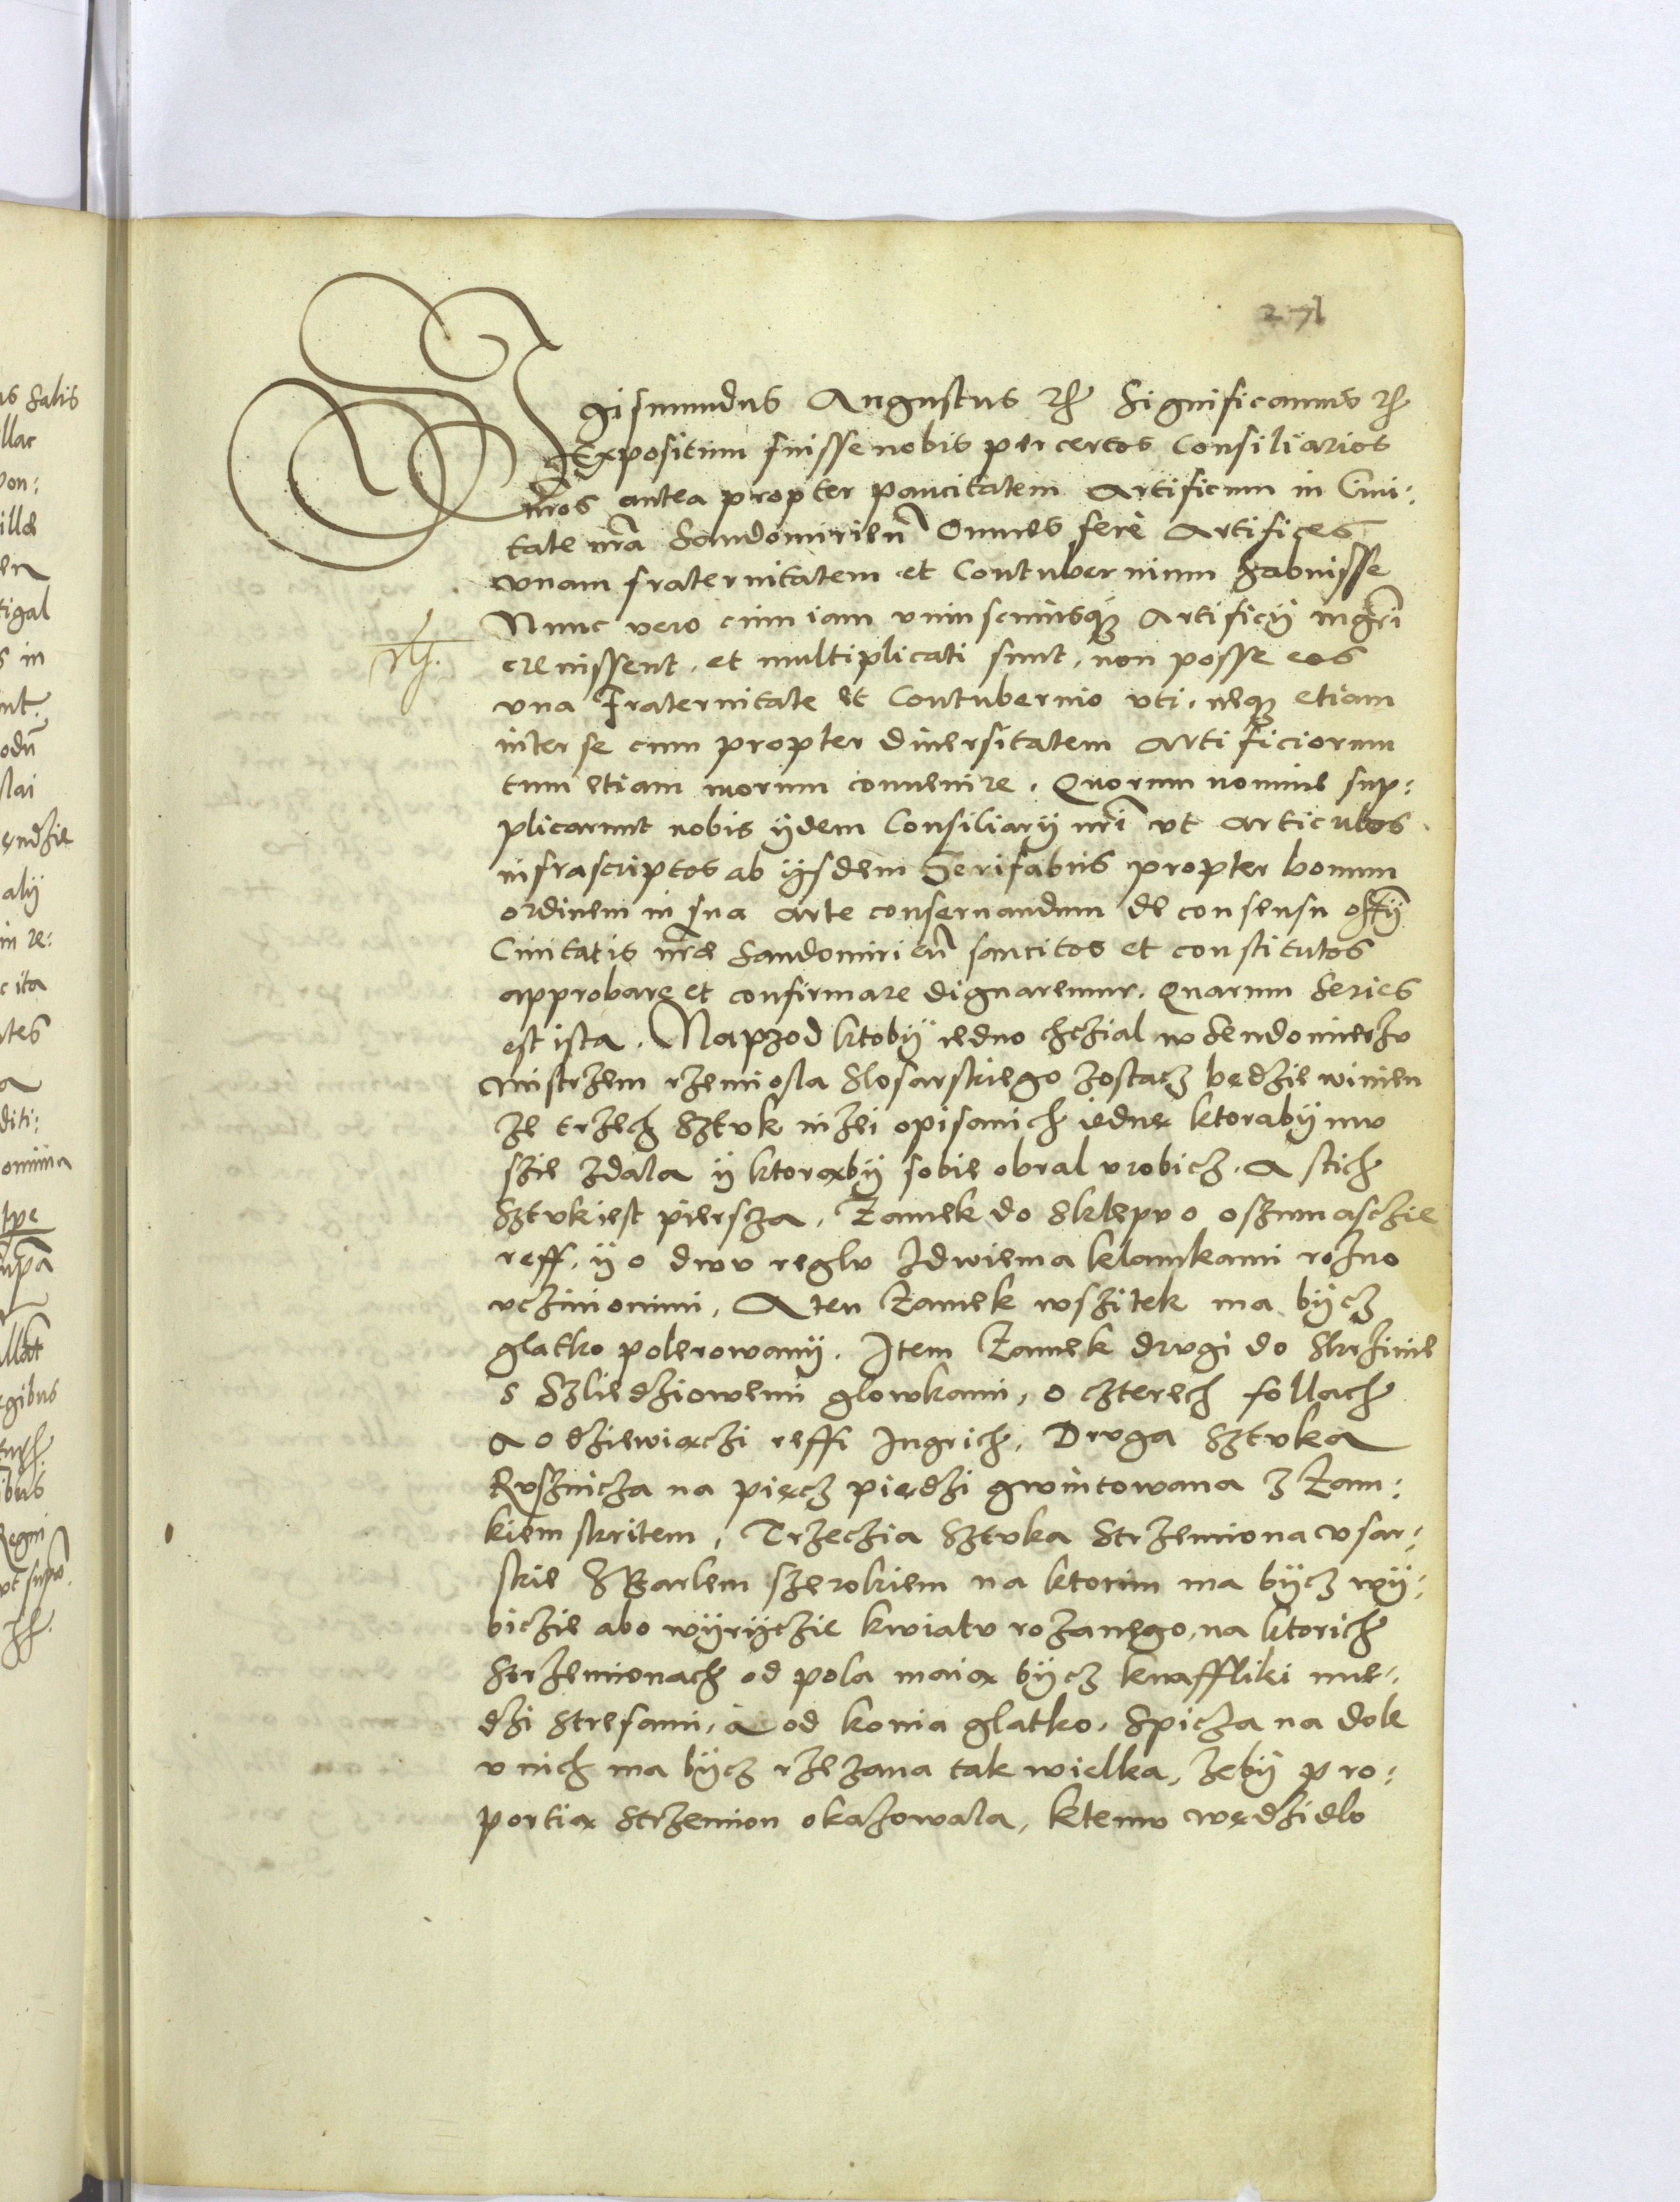 271
Sigismundus Augustus rc Significamus rc
Expositum fuisse nobis per certos Consiliarios
nros antea propter paucitatem Artificum in Civi:
tate nra Sandomirien Omnes ferè Artifices
vnam fraternitatem et Contubernium habuisse
Nunc vero cum iam vniuscuiusq; Artificij mgri
creuissent, et multiplicati sunt, non posse eos
vna Fraternitate et Contubernio vti, neq; etiam
inter se cum propter diuersitatem Artificiorum
tum etiam morum conuenire. Quorum nomine sup:
plicarunt nobis ijdem Consiliarij nri vt Articulos
infrascriptos ab ijsdem Serifabris propter bonum
ordinem in sua arte conseruandum de consensu offij
Ciuitatis nræ Sandomirien sancitos et constitutos
approbare et confirmare dignaremur. Quarum Series
est ista. Naprzod ktobÿ iedno chczial w Sendomierzv
mistrzem rzemiosla Slosarskiego zostacz będzie winien
ze trzech Sztvk nizei opisanich iednę ktorabÿ mv
szie zdala ÿ ktorąbÿ sobie obral vrobicz. A stich
Sztvk iest piersza, Zamek do Sklepv o oszmnasczie
reff, ÿ o dwv reglv zdwiema klamkami rozno
vczinionimi, A ten Zamek wszitek ma bÿcz
glatko polerowanÿ. Item Zamek drvgi do Skrzinie
s Szliedziowemi glowkami, o czterech follach
a o dziewiączi reffi Ingrich, Drvga Sztvka
Rvsznicza na pięcz piędzi gwintowana z Zam:
kiem skritem, Trzeczia Sztvka Strzemiona vsar:
skie z Barlem szerokiem na ktorim ma bÿcz wÿ:
biczie abo wÿrÿczie kwiatv rozanego, na ktorich
Strzemionach od pola maią bÿcz knaffliki mie:
dzi Stresami, a od konia glatko, Spicza na dole
v nich ma bÿcz rzezana tak wielka, zebÿ pro:
portią Strzemion okazowala, ktemv wędzidlo